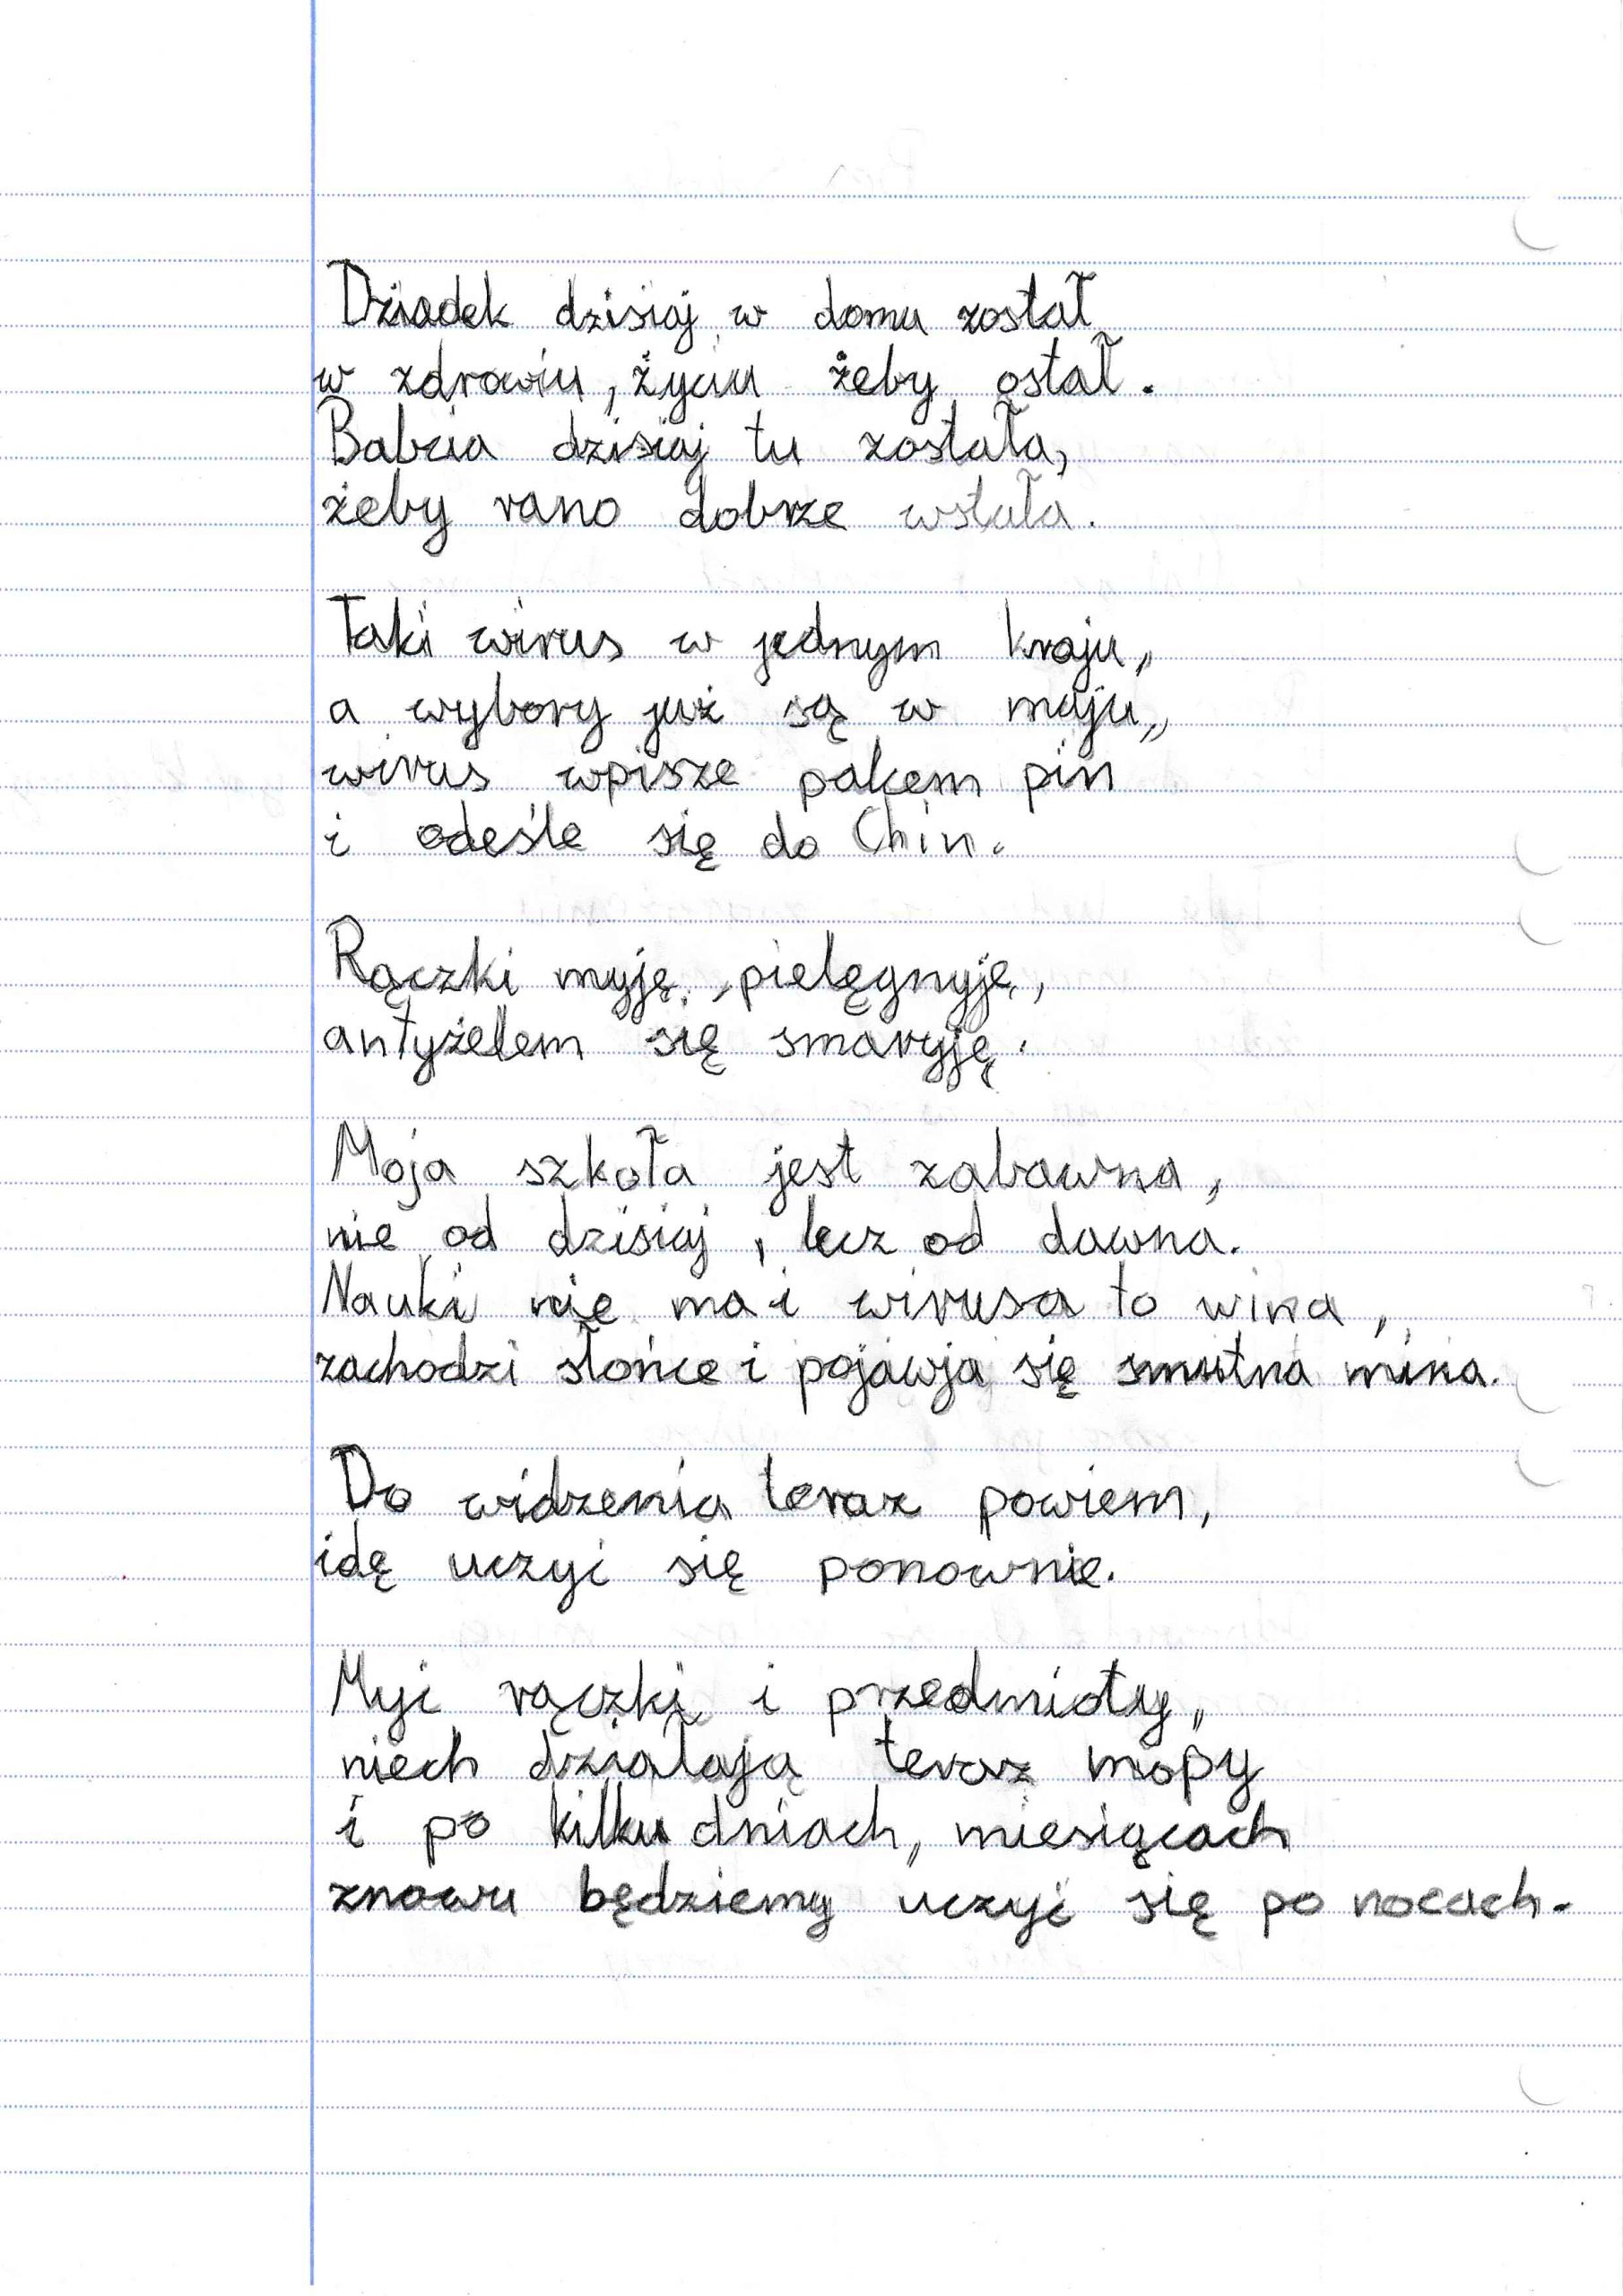 Dziadek dzisiaj w domu został
w zdrowiu, życiu żeby ostał.
Babcia dzisiaj tu została,
żeby rano dobrze wstała.
Taki wirus w jednym kraju,,
a wybory już są w maju,,
wirus wpisze palcem pin
i odeśle się do Chin.
Rączki myję, pielęgnyję,
antyżelem się smaryję.
Moja szkoła jest zabawna,
nie od dzisiaj, lecz od dawna.
Nauki nie ma i wirusa to wina,
zachodzi słońce i pojawja się smutna mina.
Do widzenia teraz powiem,
idę uczyć się ponownie.
Myj rączki i przedmioty,
niech działają teraz mopy
i po kilku dniach, miesiącach
znowu będziemy uczyć się po nocach.